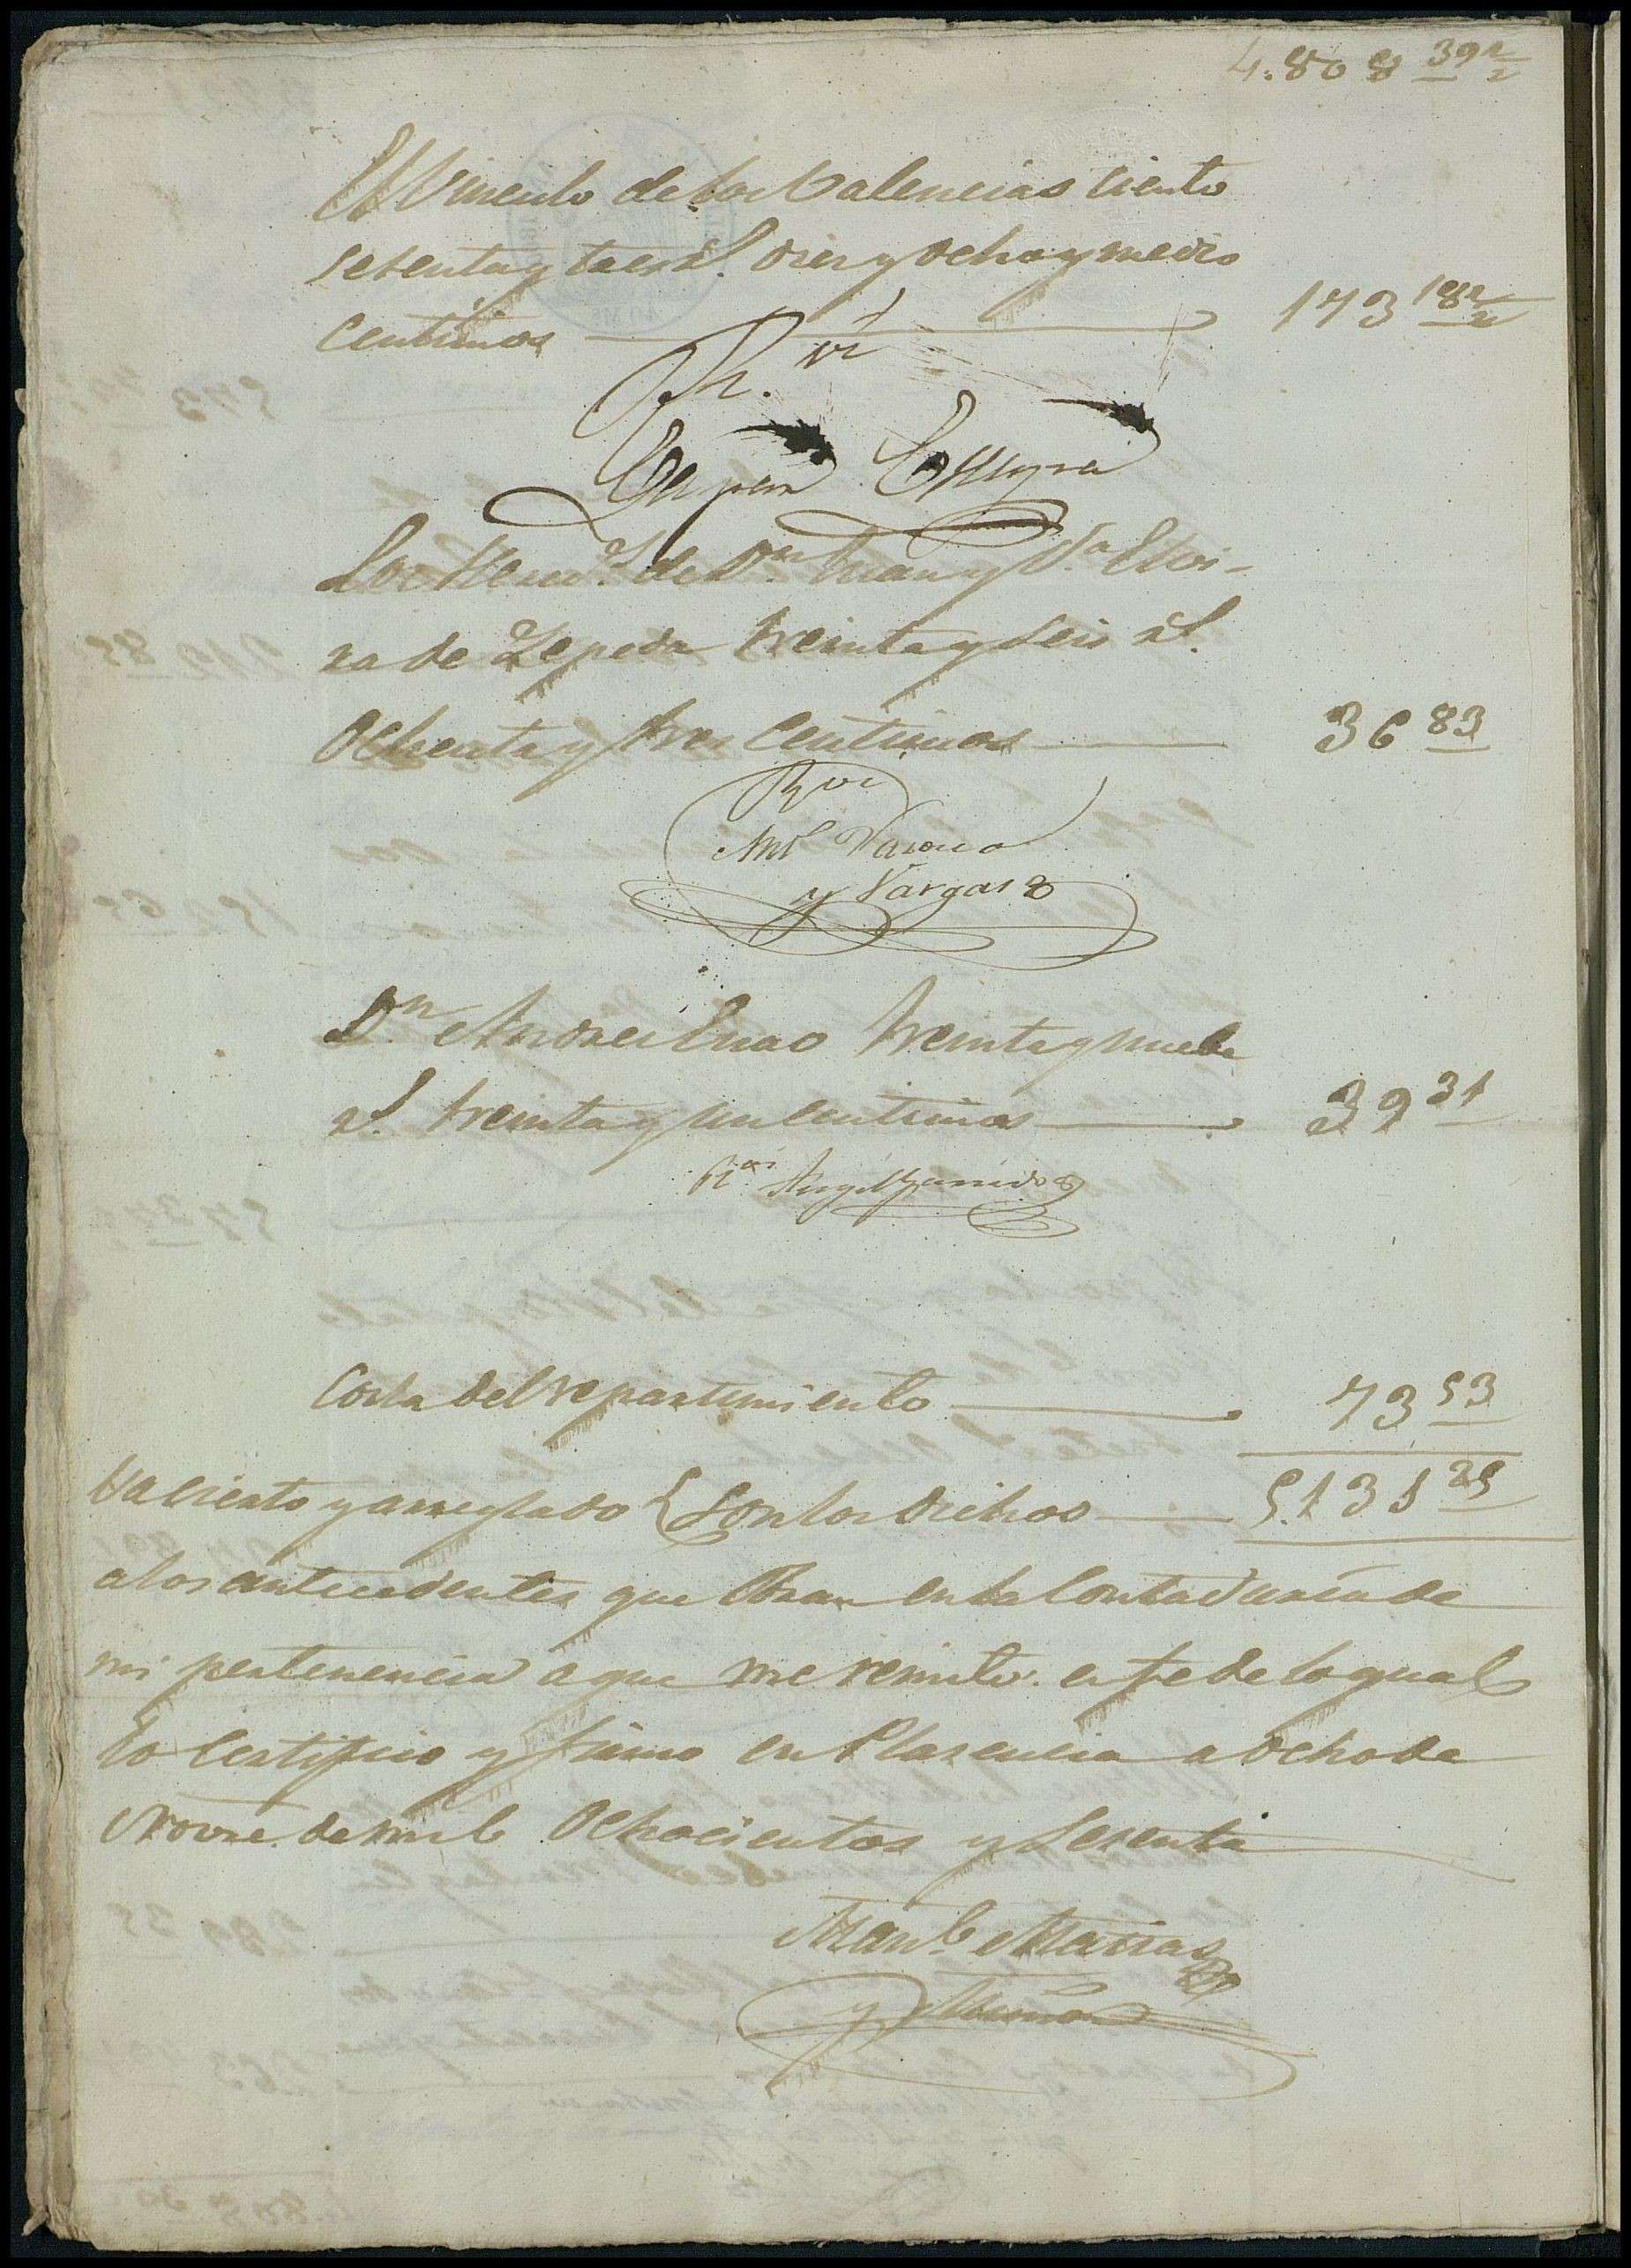 4.808 39½
El Vinculo de los Valencias ciento
setenta y tres rs. dies y ocho y medio
centimos 173 18½
Rvi
Los Hered.s de Dn Juan y Da. Elvi-
ra de Zepeda treinta y seis rs.
ochenta y tres centimos 36 83
Rvi
Ml
y Vargas
Dn. Andres Enao treinta y nuebe
rs. treinta y un centimos 39 31
Rvi Angel Garrido
Costa del repartimiento 73 53
Va cierto y arreglado Son los dichos 5.131 25
a los antecedentes que obran en la Contaduria de
mi pertenencia a que me remito. en fe de lo qual
lo Certifico y firmo en Plasencia a ocho de
Novre. de mil ochocientos y sesenta
Manl. Macias
y Muñoz